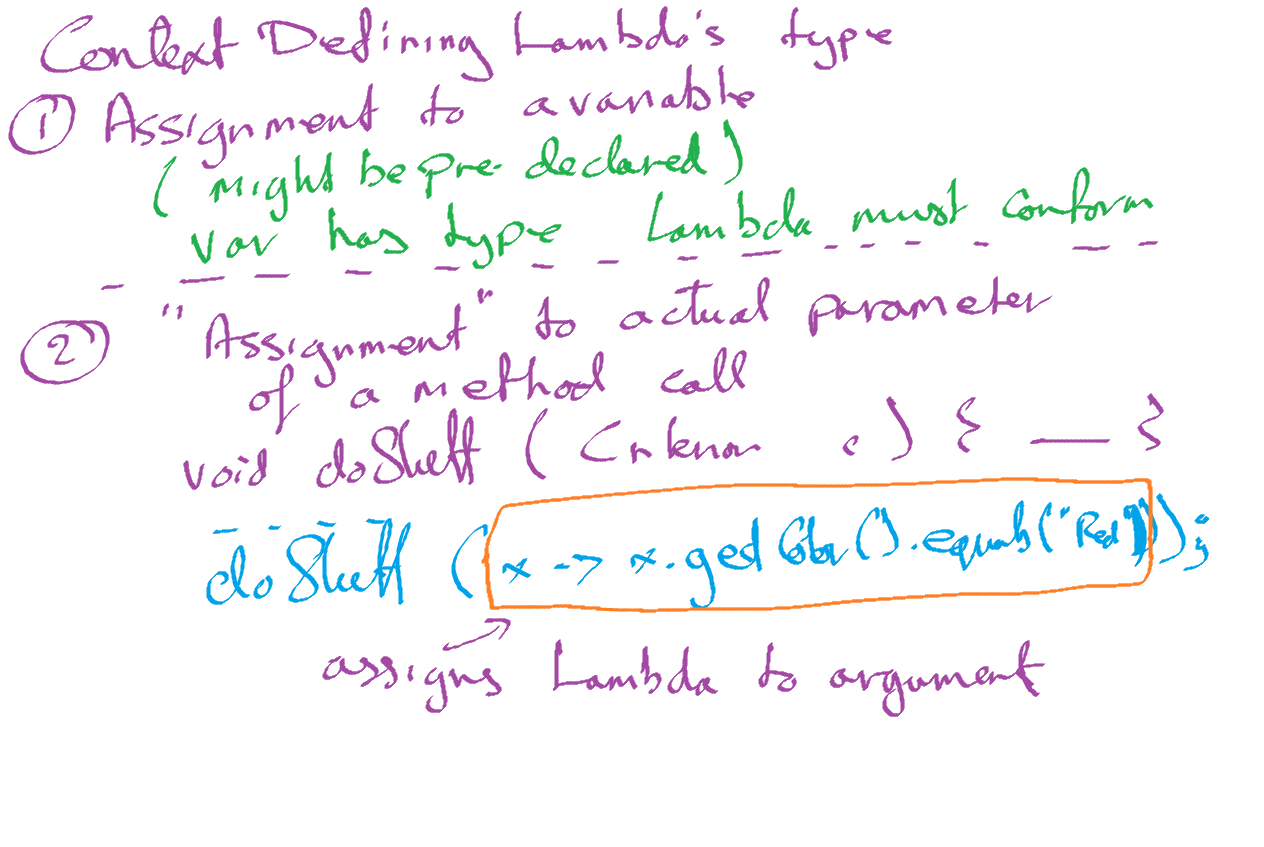 Context Defining Lambda's type
① Assignment to a variable
( might be pre-declared )
var has type Lambda must conform
② "Assignment" to actual parameter
of a method call
void doStuff ( c ) { — }
doStuff ( x -> x.getColor().equals("Red"));
assigns Lambda to argument